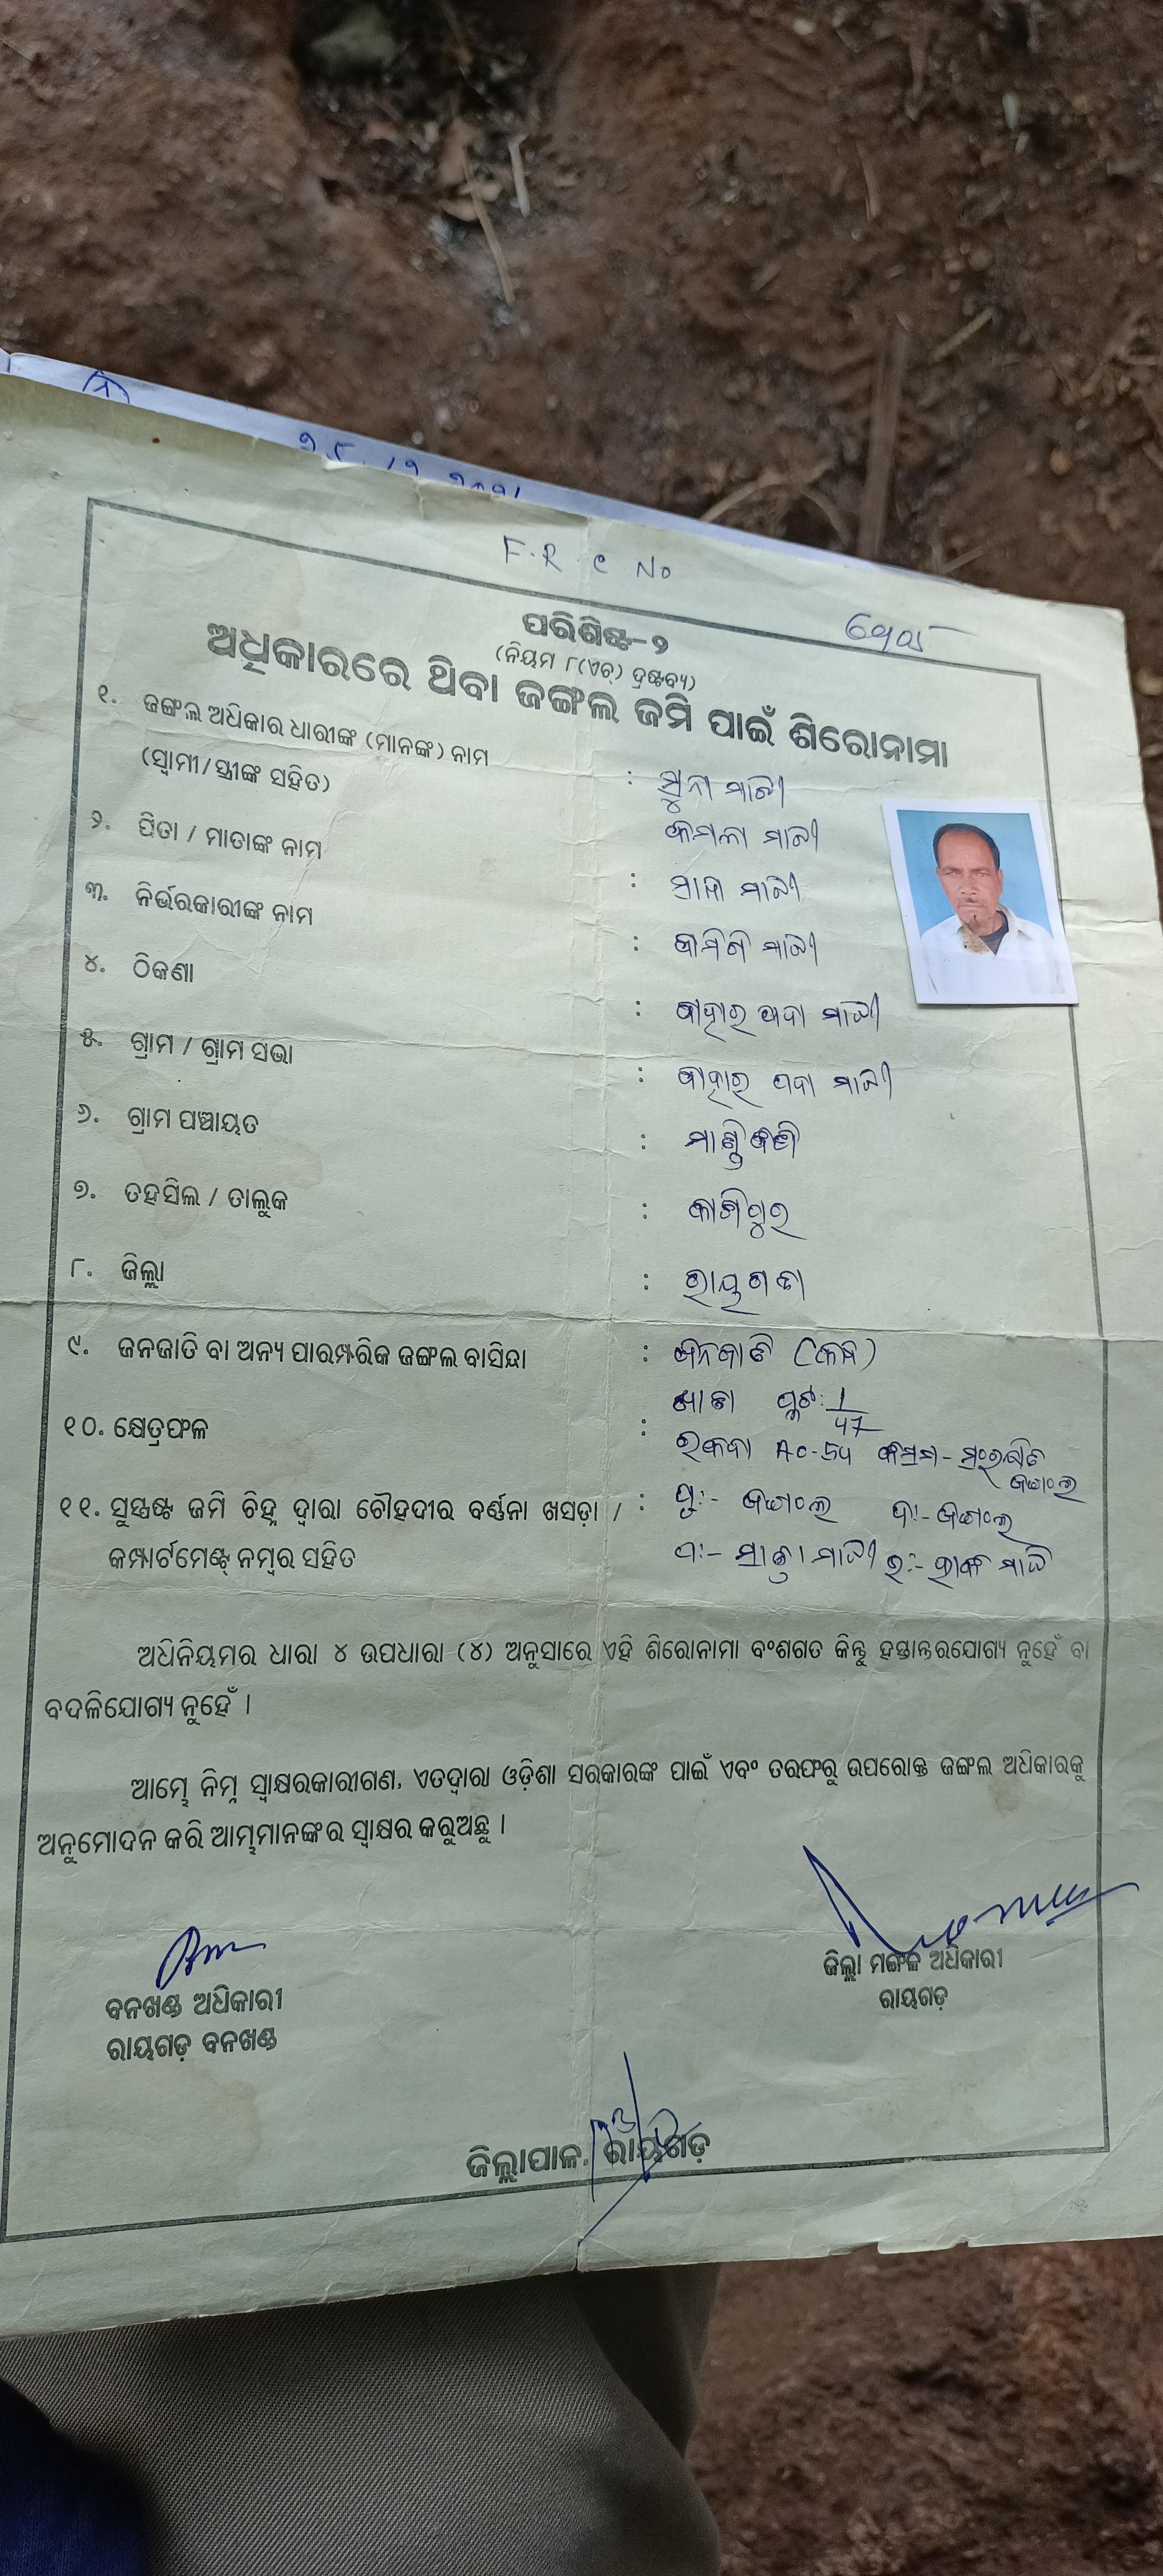 F.R.C No
ପରିଶିଷ୍ଟ-୨
(ନିୟମ ୮(ଏଚ୍) ଦ୍ରଷ୍ଟବ୍ୟ)
ଅଧିକାରରେ ଥିବା ଜଙ୍ଗଲ ଜମି ପାଇଁ ଶିରୋନାମା
୧. ଜଙ୍ଗଲ ଅଧିକାର ଧାରୀଙ୍କ (ମାନଙ୍କ) ନାମ : ସୁନା ମାଝୀ
(ସ୍ଵାମୀ/ସ୍ତ୍ରୀଙ୍କ ସହିତ) କମଳା ମାଝୀ
୨. ପିତା / ମାତାଙ୍କ ନାମ : ମାଝୀ
୩. ନିର୍ଭରକାରୀଙ୍କ ନାମ : ମାଝୀ
୪. ଠିକଣା : ମାଝୀ
୫. ଗ୍ରାମ / ଗ୍ରାମ ସଭା : ମାଝୀ
୬. ଗ୍ରାମ ପଞ୍ଚାୟତ :
୭. ତହସିଲ / ତାଲୁକ : କାଶିପୁର
୮. ଜିଲ୍ଲା : ରାୟଗଡା
୯. ଜନଜାତି ବା ଅନ୍ୟ ପାରମ୍ପରିକ ଜଙ୍ଗଲ ବାସିନ୍ଦା : ଜନଜାତି (କନ୍ଧ)
୧୦. କ୍ଷେତ୍ରଫଳ : ଖାତା ପ୍ଲଟ: 1/47
ରକବା Ac-54 କିସମ - ସଂରକ୍ଷିତ
ଜଙ୍ଗଲ
୧୧. ସୁସ୍ପଷ୍ଟ ଜମି ଚିହ୍ନ ଦ୍ଵାରା ଚୌହଦୀର ବର୍ଣ୍ଣନା ଖସଡ଼ା / : ପୂ:- ଜଙ୍ଗଲ ଦ:- ଜଙ୍ଗଲ
କମ୍ପାର୍ଟମେଣ୍ଟ୍ ନମ୍ବର ସହିତ ପ:- ମାଝୀ ଉ:- ମାଝି
ଅଧିନିୟମର ଧାରା ୪ ଉପଧାରା (୪) ଅନୁସାରେ ଏହି ଶିରୋନାମା ବଂଶଗତ କିନ୍ତୁ ହସ୍ତାନ୍ତରଯୋଗ୍ୟ ନୁହେଁ ବା
ବଦଳିଯୋଗ୍ୟ ନୁହେଁ ।
ଆମ୍ଭେ ନିମ୍ନ ସ୍ଵାକ୍ଷରକାରୀଗଣ, ଏତଦ୍ଵାରା ଓଡ଼ିଶା ସରକାରଙ୍କ ପାଇଁ ଏବଂ ତରଫରୁ ଉପରୋକ୍ତ ଜଙ୍ଗଲ ଅଧିକାରକୁ
ଅନୁମୋଦନ କରି ଆମ୍ଭମାନଙ୍କର ସ୍ଵାକ୍ଷର କରୁଅଛୁ ।
ବନଖଣ୍ଡ ଅଧିକାରୀ
ରାୟଗଡ଼ ବନଖଣ୍ଡ
ଜିଲ୍ଲା ମଙ୍ଗଳ ଅଧିକାରୀ
ରାୟଗଡ଼
ଜିଲ୍ଲାପାଳ, ରାୟଗଡ଼